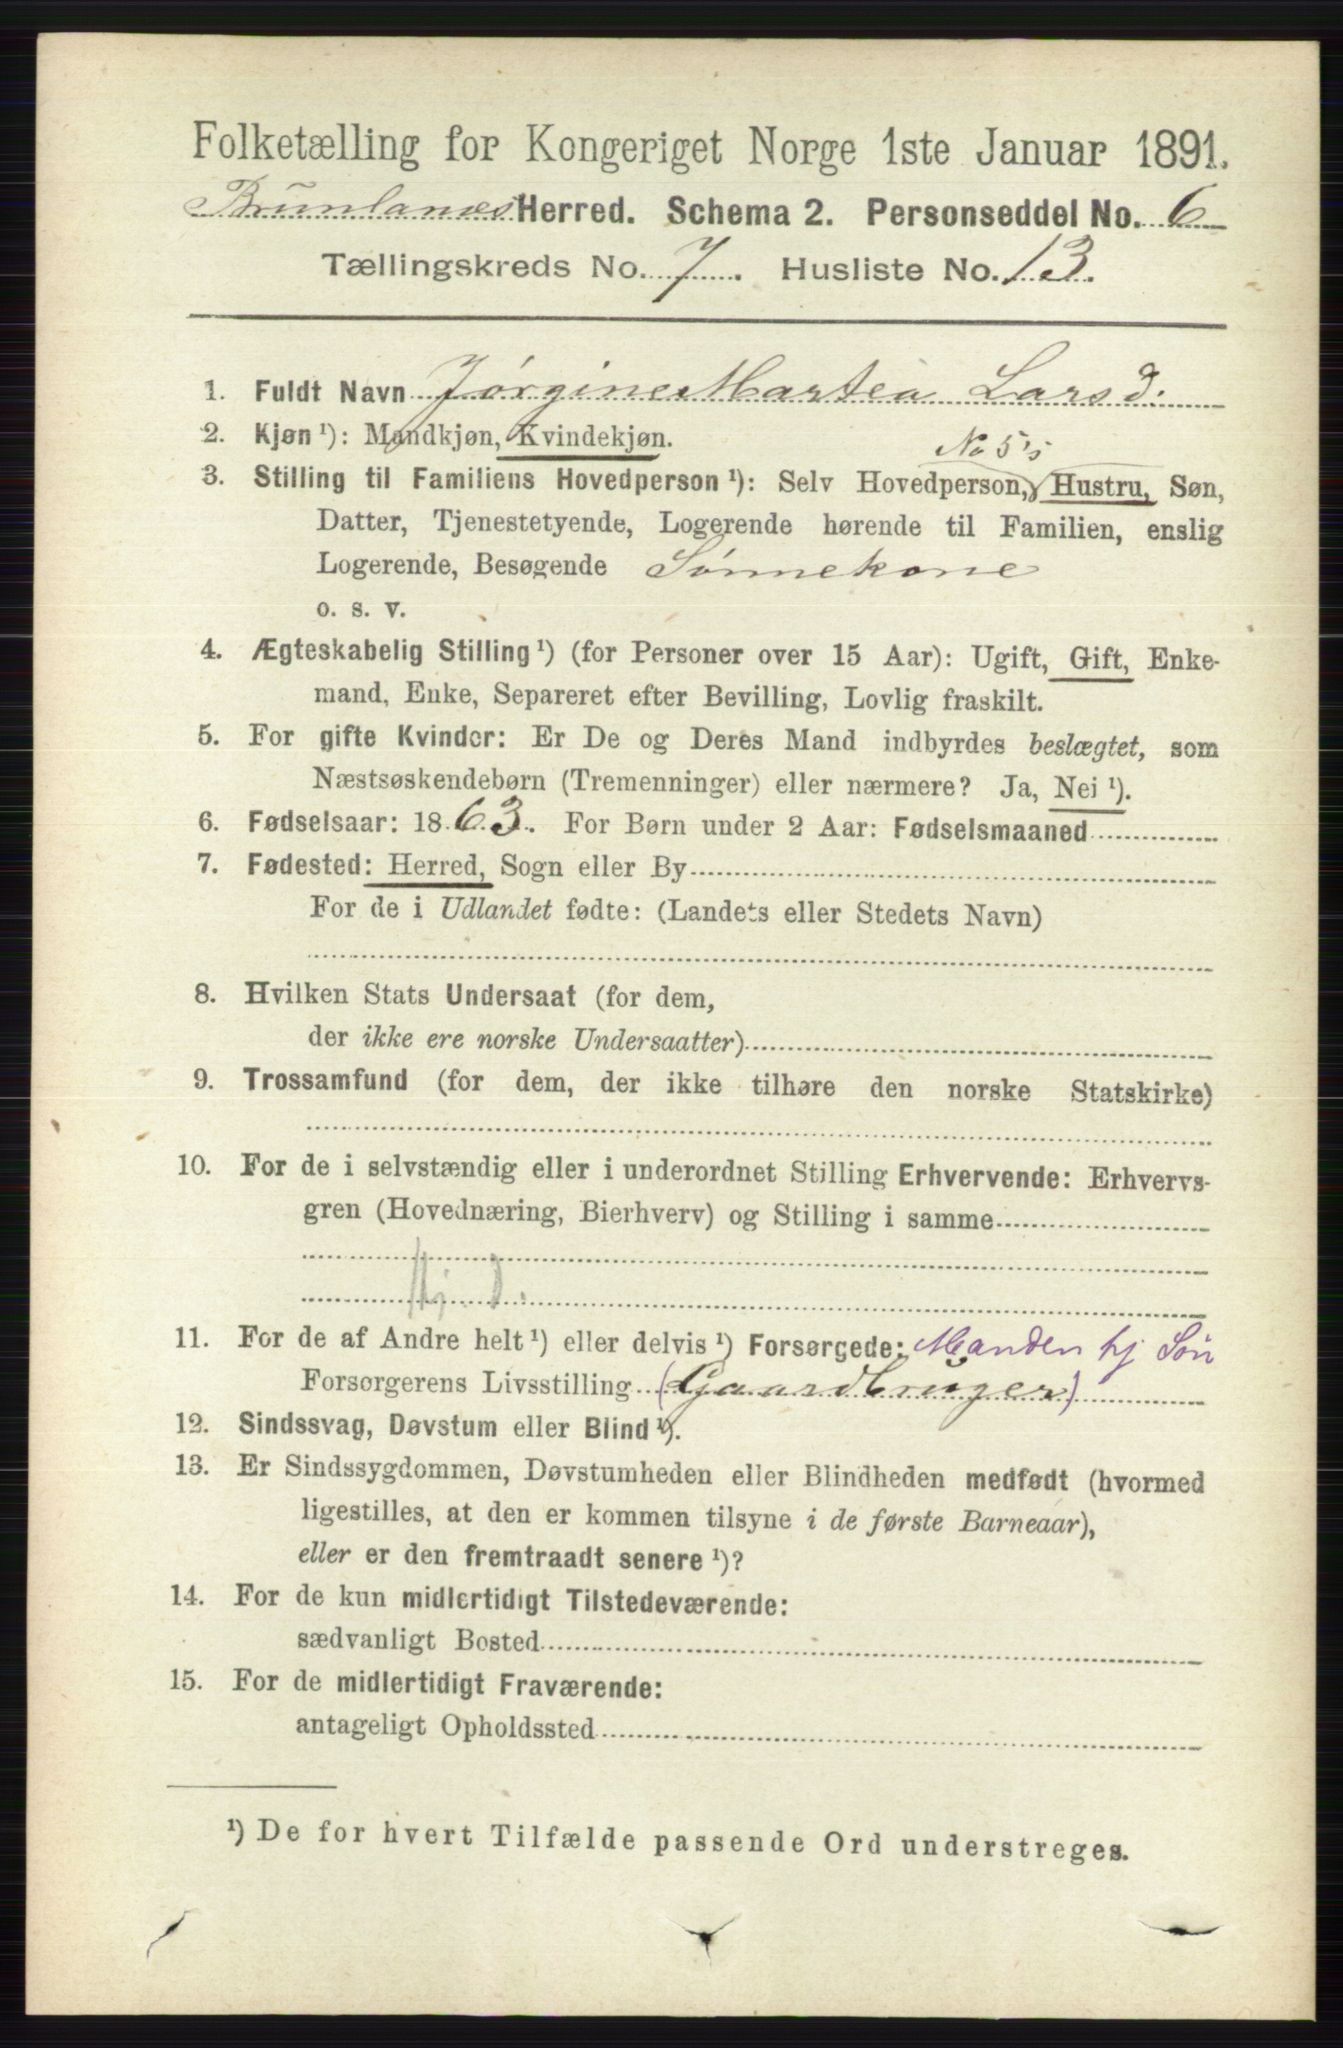 Folketælling for Kongeriget Norge 1ste Januar 1891.
Brunlanæs Herred. Schema 2. Personseddel No. 6
Tællingskreds No. 7. Husliste No. 13.
1. Fuldt Navn Jørgine Martea Larsd.
2. Kjøn ¹): Mandkjøn, Kvindekjøn.
No 5's
3. Stilling til Familiens Hovedperson ¹): Selv Hovedperson, Hustru, Søn,
Datter, Tjenestetyende, Logerende hørende til Familien, enslig
Logerende, Besøgende Sønnekone
o. s. v.
4. Ægteskabelig Stilling ¹) (for Personer over 15 Aar): Ugift, Gift, Enke-
mand, Enke, Separeret efter Bevilling, Lovlig fraskilt.
5. For gifte Kvinder: Er De og Deres Mand indbyrdes beslægtet, som
Næstsøskendebørn (Tremenninger) eller nærmere? Ja, Nei ¹).
6. Fødselsaar: 1863. For Børn under 2 Aar: Fødselsmaaned
7. Fødested: Herred, Sogn eller By
For de i Udlandet fødte: (Landets eller Stedets Navn)
8. Hvilken Stats Undersaat (for dem,
der ikke ere norske Undersaatter)
9. Trossamfund (for dem, der ikke tilhøre den norske Statskirke)
10. For de i selvstændig eller i underordnet Stilling Erhvervende: Erhvervs-
gren (Hovednæring, Bierhverv) og Stilling i samme
11. For de af Andre helt ¹) eller delvis ¹) Forsørgede: Manden hj Søn
Forsørgerens Livsstilling (Gaardbruger)
12. Sindssvag, Døvstum eller Blind ¹).
13. Er Sindssygdommen, Døvstumheden eller Blindheden medfødt (hvormed
ligestilles, at den er kommen tilsyne i de første Barneaar),
eller er den fremtraadt senere ¹)?
14. For de kun midlertidigt Tilstedeværende:
sædvanligt Bosted
15. For de midlertidigt Fraværende:
antageligt Opholdssted
¹) De for hvert Tilfælde passende Ord understreges.